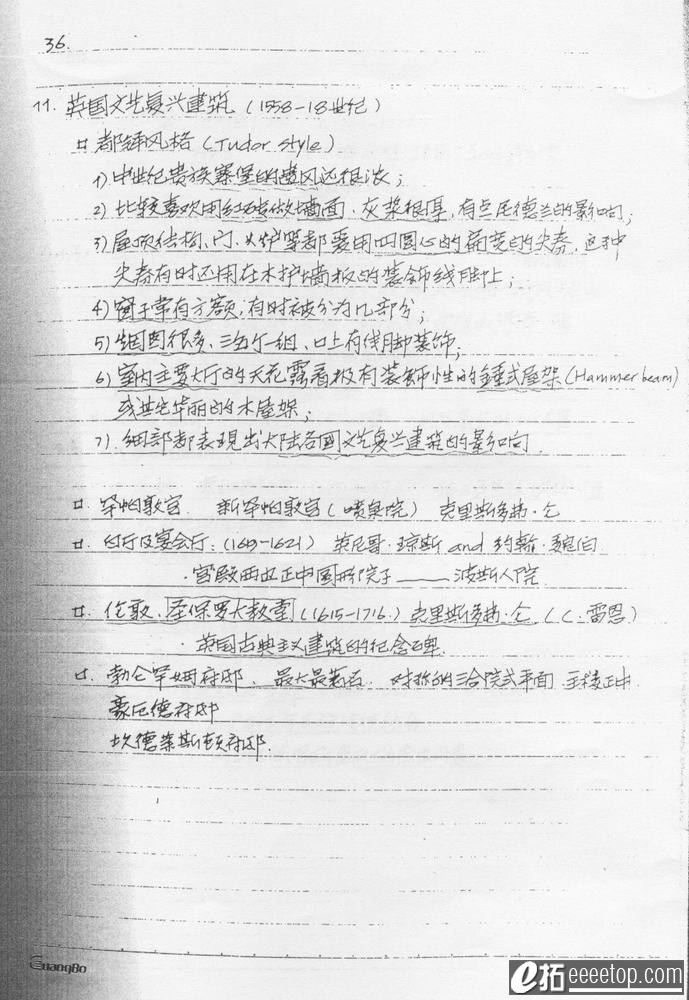 36.
11. 英国文艺复兴建筑 (1558-18世纪)
都铎风格 (Tudor style)
1) 中世纪贵族寨堡的遗风还很浓;
2) 比较喜欢用红砖做墙面. 灰浆很厚, 有点尼德兰的影响;
3) 屋顶结构、门、火炉等都爱用四圆心的扁宽的尖券, 这种
尖券有时还用在木护墙板的装饰线脚上;
4) 窗子常有方额; 有时被分为几部分;
5) 烟囱很多、三五个一组、口上有线脚装饰;
6) 室内主要大厅的天花露着极有装饰性的锤式屋架 (Hammer beam)
或其它华丽的木屋架;
7) 细部都表现出大陆各国文艺复兴建筑的影响
罕帕敦宫. 新罕帕敦宫 (喷泉院) 克里斯多弗·仑
白厅及宴会厅: (1619-1621) 英尼哥·琼斯 and 约翰·魏伯
· 宫殿西北正中圆形院子——波斯人院
伦敦. 圣保罗大教堂 (1615-1716.) 克里斯多弗·仑 (C. 雷恩)
· 英国古典主义建筑的纪念碑.
勃仑罕姆府邸、最大最著名. 对称的三合院式平面 主楼正中
豪厄德府邸
坎德莱斯顿府邸.
GuangBo
e拓 eeeetop.com